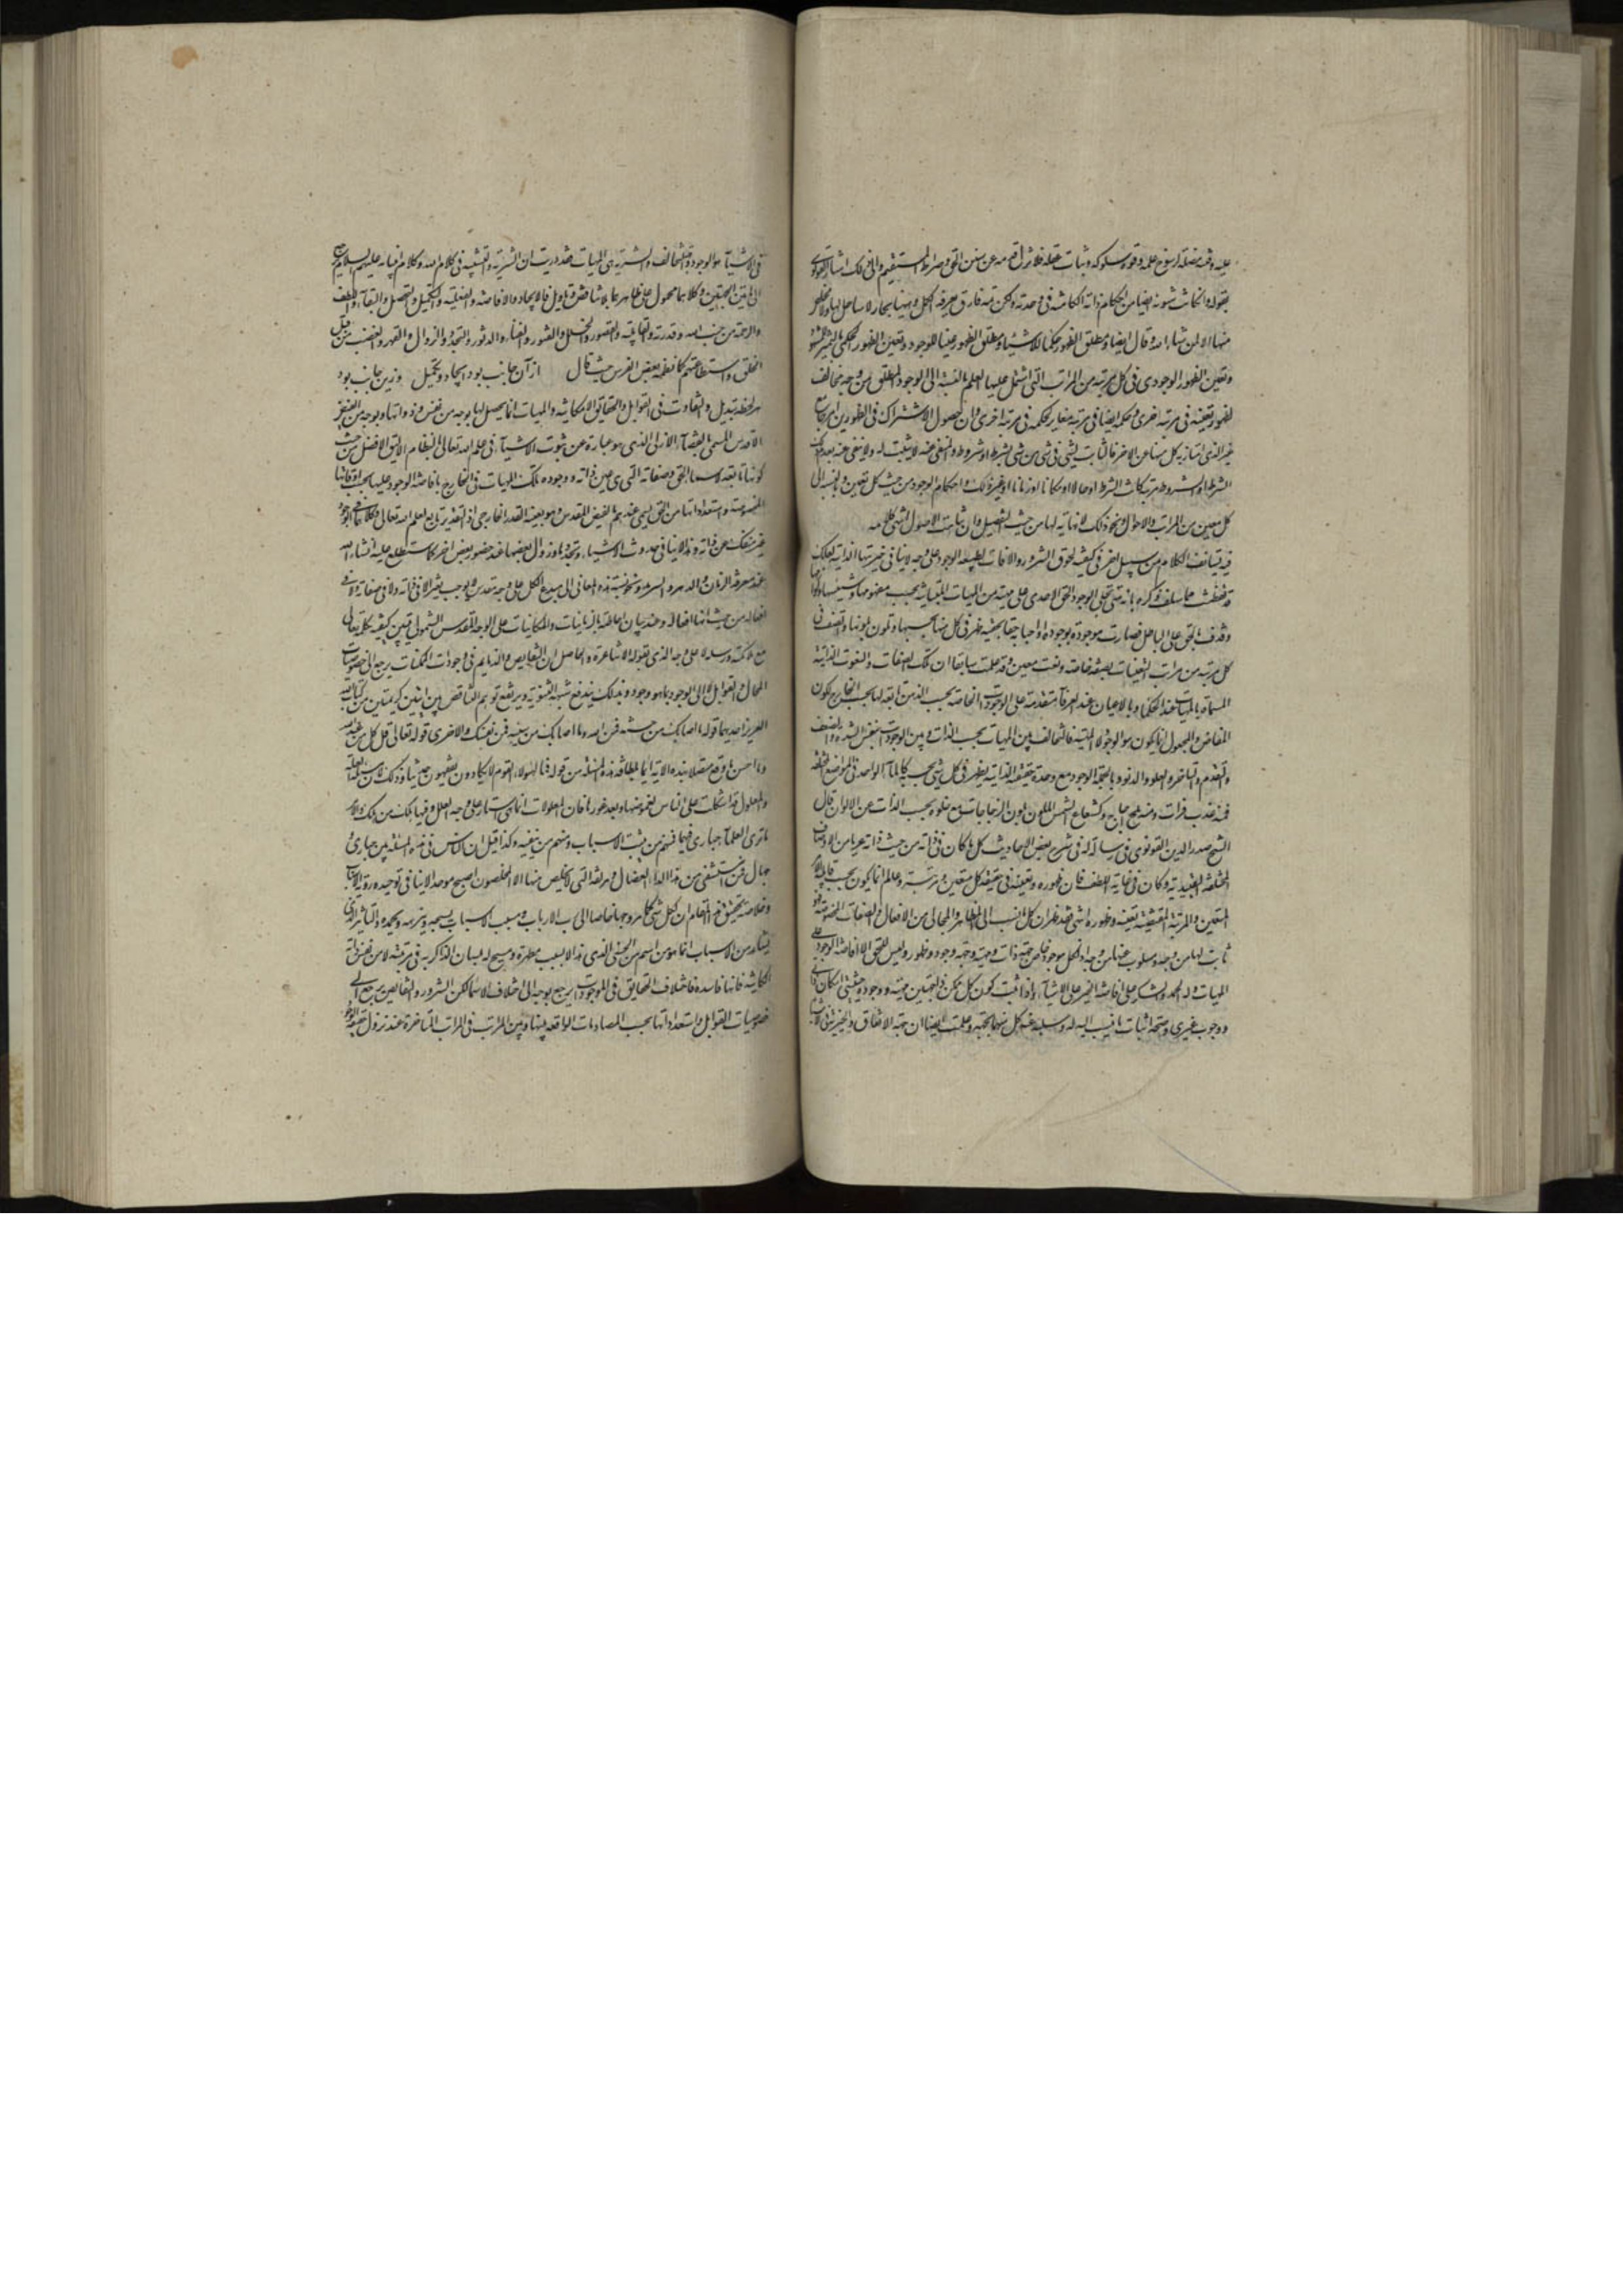 عليه وقته فضله لرسوخ علمه وقوة سلوكه وثبات عقله فلا تزل قدمه عن سنن الحق وصراطه المستقيم والى ذلك اشار القونوى
بقوله وان كانت شئونه ايضا من احكام ذاته الكامنة فى وحدته ولكن ثمه فارق يعرفه الكمل وههنا بحار لا ساحل لها ولا مخلص
منها الا لمن شاء الله وقال ايضا ومطلق الظهور حكما للاشياء ومطلق الظهور عينا للوجود وتعين الظهور الحكمى بالتميز المشهود
وتعين الظهور الوجودى فى كل مرتبة من المراتب التى اشتمل عليها العلم بالنسبة الى الوجود المطلق من وجه مخالف
لظهور تعينه فى مرتبة اخرى وحكمه ايضا فى مرتبة مغاير لحكمه فى مرتبة اخرى وان حصول الاشتراك فى الظهورين بامر جامع
غير الذى امتاز به كل منها عن الاخر فالثابت لشئ فى شئ من شئ بشرط او شروط والمنفى عنه لا يثبت له ولا ينفى عنه بعدم ذلك
الشرط او الشروط مرتبة كانت الشرط او حالا او مكانا او زمانا او غير ذلك واحكام الوجود من حيث كل تعين وبالنسبة الى
كل معين من المراتب والاحوال ونحو ذلك لا نهاية لها من حيث التفصيل وان تناهت الاصول انتهى كلامه
فيه يستأنف الكلام من سبيل اخر فى كيفية لحوق الشرور والافات لطبيعة الوجود على وجه لا ينافى خيريتها الذاتية لعلك
قد تفطنت مما سلف ذكره بانه متى تجلى الوجود الحق الاحدى على مهية من المهيات المتباينة بحسب مفهومها وشيئيتها ولوازمها
وقذف بالحق على الباطل فصارت موجودة بوجوده او واجبة حقا بحقيته ظهر فى كل منها بحسبها وتلون بلونها واتصف فى
كل مرتبة من مراتب التعينات بصفة خاصة ونعت معين وقد علمت سابقا ان تلك الصفات والنعوت الذاتية
المسماة بالمهيات عند الحكماء وبالاعيان عند العرفاء متقدمة على الوجودات الخاصة بحسب الذهن تابعة لها بحسب الخارج لكون
المفاض والمجعول انما يكون هو الوجود لا المهية فالتخالف بين المهيات بحسب الذات وبين الوجودات بنفس الشدة والضعف
والتقدم والتاخر والعلو والدنو وبالجملة الوجود مع وحدة حقيقته الذاتية يظهر فى كل شئ بحسبه كالماء الواحد فى المواضع المختلفة
فمنه عذب فرات ومنه ملح اجاج وكشعاع الشمس الملون بلون الزجاجات مع خلوه بحسب الذات عن الالوان قال
الشيخ صدر الدين القونوى فى رسالة له فى شرح بعض الاحاديث كل ما كان فى ذاته من حيث ذاته عريا من الاوصاف
المختلفة التقييدية وكان فى غاية اللطف فان ظهوره وتعينه فى حقيقة كل متعين ومرتبة وعالم انما يكون بحسب قابلية الامر
المتعين والمرتبة المقتضية تعينه وظهوره انتهى فقد ظهر ان كل ما نسب الى المظاهر والمجالى من الافعال والصفات المخصوصة فهو
ثابت لها من وجه ومسلوب عنها من وجه اذ لكل موجود خاص جهة ذات ومهية وجهة وجود وظهور وليس للحق الا افاضة الوجود على
المهيات وله الحمد والشكر على افاضة الخير على الاشياء واذا ثبت كون كل ممكن ذا جهتين مهية ووجود وحيثيتى امكان ذاتى
ووجوب غيرى وصحة اثبات ما ينسب اليه له وسلبه عنه كل منهما بجهة وعلمت ايضا ان جهة الاتفاق والخيرية فى الاشياء
فى الاشياء هو الوجود وجهة التخالف والشرية هى المهيات فقد دريت ان التنزيه والتشبيه فى كلام الله وكلام انبيائه عليهم السلام يرجع
الى هاتين الجهتين وكلاهما محمول على ظاهرهما بلا تناقض وتاويل فالايجاد والافاضة والفعلية والتكميل والتحصيل والبقاء واللطف
والرحمة من جنب الله وقدرته والقابلية والقصور والخلل والفتور والفناء والدثور والتجدد والزوال والقهر والغضب من قبل
الخلق واستطاعتهم كما نظمه بعض الفرس حيث قال از آن جانب بود ايجاد وتكميل وزين جانب بود
هر لحظه تبديل والتفاوت فى القوابل والحقائق الامكانية والمهيات انما يحصل لها بوجه من نفس ذواتها وبوجه من الفيض
الاقدس المسمى بالقضاء الازلى الذى هو عبارة عن ثبوت الاشياء فى علم الله تعالى بالنظام الاليق الافضل من حيث
كونها تابعة لاسماء الحق وصفاته التى هى عين ذاته ووجود تلك المهيات فى الخارج بافاضة الوجود عليها بحسب اوقاتها
المخصوصة واستعداداتها من الحق يسمى عندهم بالفيض المقدس وهو بعينه القدر الخارجى اذ التقدير تابع لعلم الله تعالى وكلاهما فى الوجود
غير منفك عن ذاته وهذا لا ينافى حدوث الاشياء وتجددها وزوال بعضها عند حضور بعض اخر كما ستطلع عليه ان شاء الله
عند معرفة الزمان والدهر والسرمد ونحو نسبة هذه المعانى الى مبدع الكل على وجه مقدس لا يوجب تغيرا لا فى ذاته ولا فى صفاته ولا فى
افعاله من حيث انها افعاله وعند بيان احاطته بالزمانيات والمكانيات على الوجه المقدس الشمولى تبين كيفية تكلمه تعالى
مع ملائكته ورسله لا على وجه الذى تقوله الاشاعرة والحاصل ان النقايص والذمايم فى وجودات الممكنات يرجع الى خصوصيات
المحال والقوابل لا الى الوجود بما هو وجود وبذلك يندفع شبهة الثنوية ويرتفع توهم التناقض بين ايتين كريمتين من كتاب الله
العزيز احديهما قوله ما اصابك من حسنة فمن الله وما اصابك من سيئة فمن نفسك والاخرى قوله تعالى قل كل من عند الله
وما احسن ما وقع متصلا بهذه الاية ايماء بلطافة هذه المسئلة من قوله فما لهؤلاء القوم لا يكادون يفقهون حديثا وذلك لان مسئلة العلة
والمعلول قد اشكلت على الناس لغموضها وبعد غورها فان المعلولات انما هى استار على وجه العلل وفيها هلك من هلك والامر
ما ترى العلماء حيارى فيها فمنهم من يثبت الاسباب ومنهم من ينفيه وكذا قيل ان الناس فى هذه المسئلة بين حيارى و
جهال فمن استشفى من هذا الداء العضال ومرضه التى لا يخلص منها الا المخلصون اصبح موحدا لا ينافى توحيده روية الاسباب
وخلاصة تحقيق هذا المقام ان لكل شئ كما مر وجها خاصا الى رب الارباب ومسبب الاسباب به يسبحه وينزهه ويحمده والتاثير الذى
يشاهد من الاسباب انما هو من اسم من الحسنى الذى هذا السبب مظهره ومسبح له بلسان الذاكرية فى مرتبته لا من نفس ذاته
الكائنة فانها فاسدة فاختلاف الحقايق فى الموجودات يرجع بوجه الى اختلاف الاسماء لكن الشرور والنقايص يرجع الى
خصوصيات القوابل واستعداداتها بحسب المصادمات الواقعة بينها وبين المراتب فى المراتب المتاخرة عند نزول حقيقة الوجود